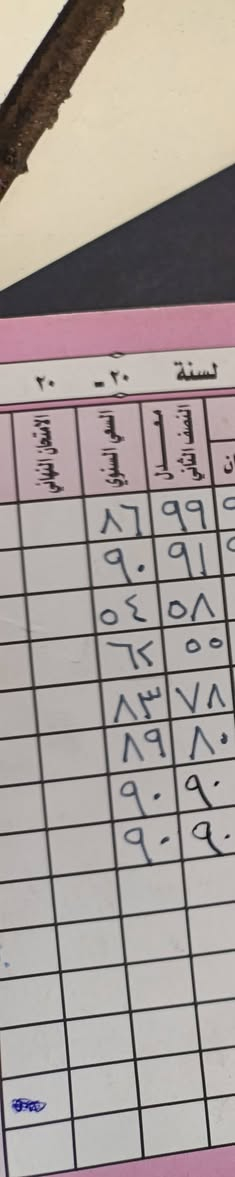 لسنة ٢٠ - ٢٠
معدل النصف الثاني السعي السنوي الامتحان النهائي
٩٩ ٨٦
٩١ ٩٠
٥٨ ٥٤
٥٥ ٦٢
٧٨ ٨٣
٨٠ ٨٩
٩٠ ٩٠
٩٠ ٩٠